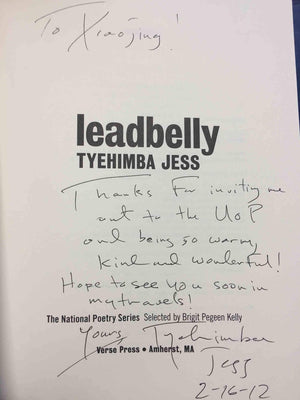 To Xiaojing!
leadbelly
TYEHIMBA JESS
Thanks for inviting me
out to the UoP
and being so warm,
kind and wonderful!
Hope to see you soon in
my travels!
The National Poetry Series Selected by Brigit Pegeen Kelly
Yours, Tyehimba
Verse Press • Amherst, MA
Jess
2-16-12